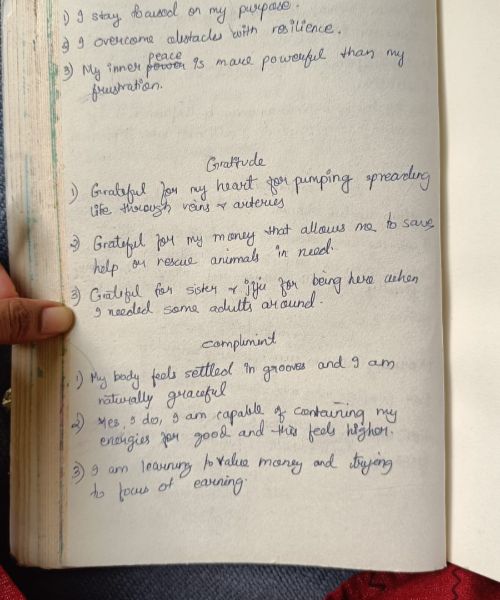 1) I stay focused on my purpose.
2) I overcome obstacles with resilience.
peace
3) My inner power is more powerful than my
frustration.
Gratitude
1) Grateful for my heart for pumping spreading
life through veins & arteries
2) Grateful for my money that allows me to save
help or rescue animals in need.
3) Grateful for sister & jiju for being here when
I needed some adults around.
Compliment
1) My body feels settled in grooves and I am
naturally graceful
2) Yes, I do, I am capable of containing my
energies for good and this feels higher.
3) I am learning to value money and trying
to focus of earning.